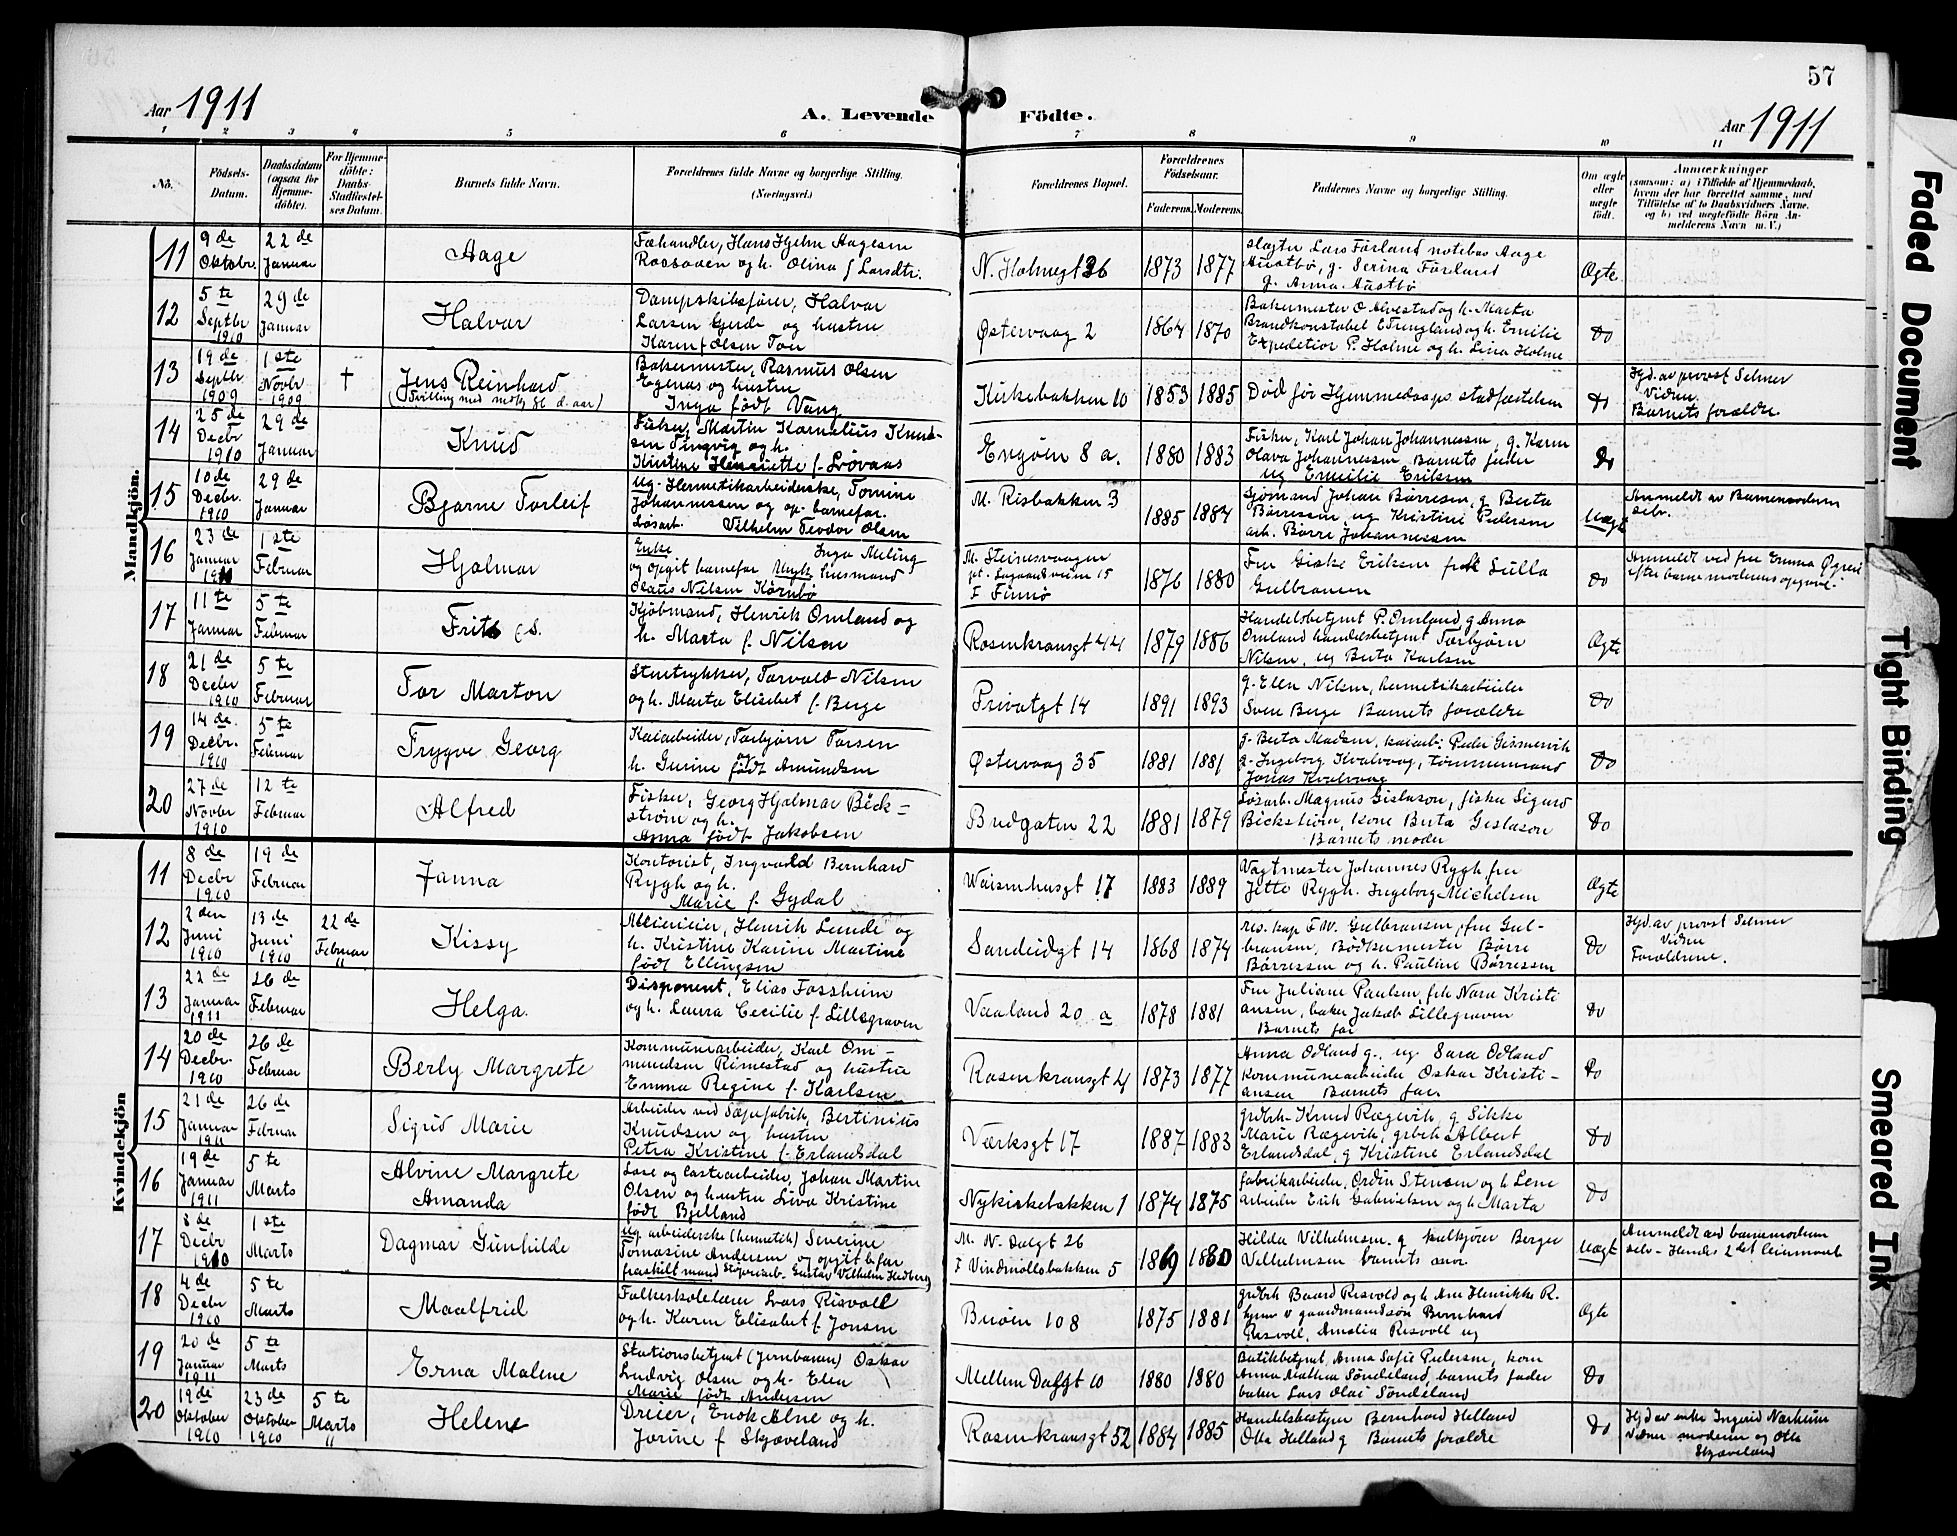 57
Aar 1911
A. Levende Födte.
Aar 1911
1 2 3 4 5 6 7 8 9 10 11
No.
Födsels-
Datum.
Daabsdatum
(ogsaa for
Hjemme-
döbte).
For Hjemme-
döbte:
Daabs-
Stadfæstel-
ses Datum.
Barnets fulde Navn.
Forældrenes fulde Navne og borgerlige Stilling.
(Næringsvei.)
Forældrenes Bopæl.
Forældrenes
Födselsaar.
Faderens. Moderens.
Faddernes Navne og borgerlige Stilling.
Om ægte
eller
uægte
födt.
Anmærkninger
(saasom: a) i Tilfælde af Hjemmedaab,
hvem der har forrettet samme, med
Tilföielse af to Daabsvidners Navne.
og b) ved uegtefödte Börn An-
melderens Navn m.V.)
Mandkjön.
11
9de
Oktobr.
22de
Januar
Aage
Fæhandler, Hans Hjelm Aagesen
Rossaaen og h. Olina f Larsdtr.
N. Holmegt 36
1873 1877
Slagter Lars Förland notebas Aage
Austbö, g. Serina Förland
g. Anna Austbö
Ægte
12
5te
Septbr
1910
29de
Januar
Halvar
Dampskibsförer, Halvar
Larsen Gjerde og hustru
Karen f Olsen Tou
Østervaag 2
1864 1870
Bakermester O Alvestad og h. Marta
Brandkonstabel E Tengland og h. Emilie
Expeditior P. Holme og h. Lina Holme
Do
13
19de
Septbr
1909
1ste
Novbr
1909
†
Jens Reinhard
(Tvilling med
Bakermester, Rasmus Olsen
Egenæs og hustru
Inga födt Vang
Kirkebakken 10
1853 1885
Död för Hjemmedaaps stadfæstelsen
Do
Hjd. av provst Selmer
Vidner
Barnets forældre
14
25de
Decbr
1910
29de
Januar
Knud
Fisker, Martin Kornelius Knud-
sen Tingvig og h.
Kristine Henriette f. Lövaas
Engöen 8 a.
1880 1883
Fisker, Karl Johan Johannessen, g. Karen
Olava Johannessen Barnets fader
ug Emilie Eriksen
Do
15
10de
Decbr.
1910
29de
Januar
Bjarne Torleif
Ug. Hermetikarbeiderske, Tomine
Johannessen og op. barnefar.
Lösarb. Vilhelm Teodor Olsen
M. Risbakken 3
1885 1884
Sjömand Johan Börresen, g Berta
Börresen, ug Kristine Pedersen
arb. Börre Johannessen
Uægt
Anmeldt av Barnemoderen
selv.
16
23de
Januar
1911
1ste
Februar
Hjalmar
Enke Inga Meling
og opgit barnefar Ungk husmand
Olaus Nilsen Körnbö
M. Steinsvaagen
F Finnö
1876 1880
Fru Giske Eriksen frk Lulla
Gulbransen
Do
Anmeldt ved fru Emma Øgreid
efter barnemoderens opgave.
17
11te
Januar
5te
Februar
Frits
Kjöbmand, Henrik Omland og
h. Marta f. Nilsen
Rosenkransgt 44
1879 1886
Handelsbetjent P. Omland g Anna
Omland handelsbetjent Torbjörn
Nilsen, ug Berta Karlsen
Ægte
18
21de
Decbr
1910
5te
Februar
Tor Marton
Stentrykker, Torvald Nilsen
og h. Marta Elisebet f. Berge
Privatgt 14
1891 1893
g. Ellen Nilsen, hermetikarbeider
Sven Berge Barnets forældre
Do
19
14de.
Decbr.
1910
5te
Februar
Trygve Georg
Kaiarbeider, Torbjörn Torsen
h. Gurine födt Amundsen
Østervaag 35
1881 1881
g. Berta Madsen, kaiarb. Peder Gismervik
g. Ingeborg Kvalvaag, tömmermand
Jonas Kvalvaag
Do
20
27de
Novbr
1910
12te
Februar
Alfred
Fisker, Georg Hjalmar Bick-
ström og h.
Anna födt Jakobsen
Bredgaten 22
1881 1879
Lösarb. Magnus Gislason, fisker Sigurd
Bickström, kone Berta Gislason
Barnets moder
Do
Kvindekjön
11
8de
Decbr
1910
19de
Februar
Janna
Kontorist, Ingvald Bernhard
Rygh og h.
Marie f. Gydal
Waisenhusgt 17
1883 1889
Vagtmester Johannes Rygh fru
Jette Rygh. Ingeborg Michelsen
Ægte
12
2den
Juni
1910
13de
Juni
1910
22de
Februar
"
Kissy
Meierieier, Henrik Lunde og
h. Kristine Karine Martine
födt Ellingsen
Sandeidgt 14
1868 1874
res. kap F W. Gulbransen, fru Gul-
bransen, Bödkermester Börre
Börresen og h. Pauline Börresen
Do
Hjd. av provst Selmer
Vidner
Foreldrene.
13
22de
Januar
1911
26de
Februar
Helga.
Disponent, Elias Fossheim
og h. Laura Cecilie f Lillegraven
Vaaland 20 a
1878 1881
Fru Juliane Paulsen, frk Nara Kristi
ansen, baker Jakob Lillegraven
Barnets far
Do
14
20de
Decbr.
1910
26de
Februar
Berly Margrete
Kommunearbeider, Karl Om-
mundsen Rimestad og hustru
Emma Regine f. Karlsen
Rosenkransgt 4
1873 1877
Anna Odland g., ug Sara Odland
Kommunearbeider Oskar Kristi-
ansen Barnets far
Do
15
21de
Januar
1911
26de
Februar
Sigrid Marie
Arbeider ved Sæpefabrik, Bertinius
Knudsen og hustru
Petra Kristine f. Erlandsdal
Værksgt 17
1887 1883
grdbrk. Knud Rægevik, g. Sikke
Marie Rægevik, grbrk Albert
Erlandsdal, g Kristine Erlandsdal
Do
16
19de
Januar
1911
5te
Marts
Alvine Margrete
Amanda
Lose og Lastearbeider, Johan Martin
Olsen og hustru Liva Kristine
födt Bjelland
Nykirkebakken 1
1874 1875
Fabrikarbeider, Ordin Stensen og h. Lene
arbeider Erik Gabrielsen og h Marta
Do
17
8de
Decbr
1910
1ste
Marts
Dagmar Gunhilde
ug. arbeiderske (hermetik) Severine
Tomasine Andersen og opgit b.far
fraskilt mand Gustav Vilhelm Hedberg
M. N. Dalgt 26
F Vindmöllebakken 5
1869 1880
Hilda Vilhelmsen. g kulkjörer Berger
Velhelmsen barnets mor
Uægt
Anmeldt av barnemoderen
selv - Hendes 2det leiermaal
18
4de
Decbr
1910
5te
Marts
Maalfrid
Folkeskolelærer Lars Risvoll
og h. Karen Elisabet f Jonsen
Buöen 108
1875 1881
grdbrk Baard Risvold og h Ane Henrikke R.
gaardmandsön Bernhard
Risvoll, Amalia Risvoll ug
Ægte
19
20de
Januar
1911
5te
Marts
Erna Malene
Stationsbetjent (Jernbanen) Oskar
Ludvig Olsen og h. Elen
Marie födt Andersen
Mellem Dalgt 10
1880 1880
Butikbetjent, Anna Sofie Pedersen, kone
Anna Mathea Söndeland, barnets fader
baker Lars Olai Söndeland
Do
20
19de
Oktober
1910
23de
Oktober
1910
5te
Marts
"
Helene
Dreier, Enok Alne og h.
Jorine f Skjæveland
Rosenkransgt 52
1884 1885
Handelsbestyrer Bernhard Helland
Otta Helland g Barnets forældre
Do
Hjd av enke Ingerid Nærheim
Vidner moderen og Otto
Skjæveland
Faded Document
Tight Binding
Smeared Ink